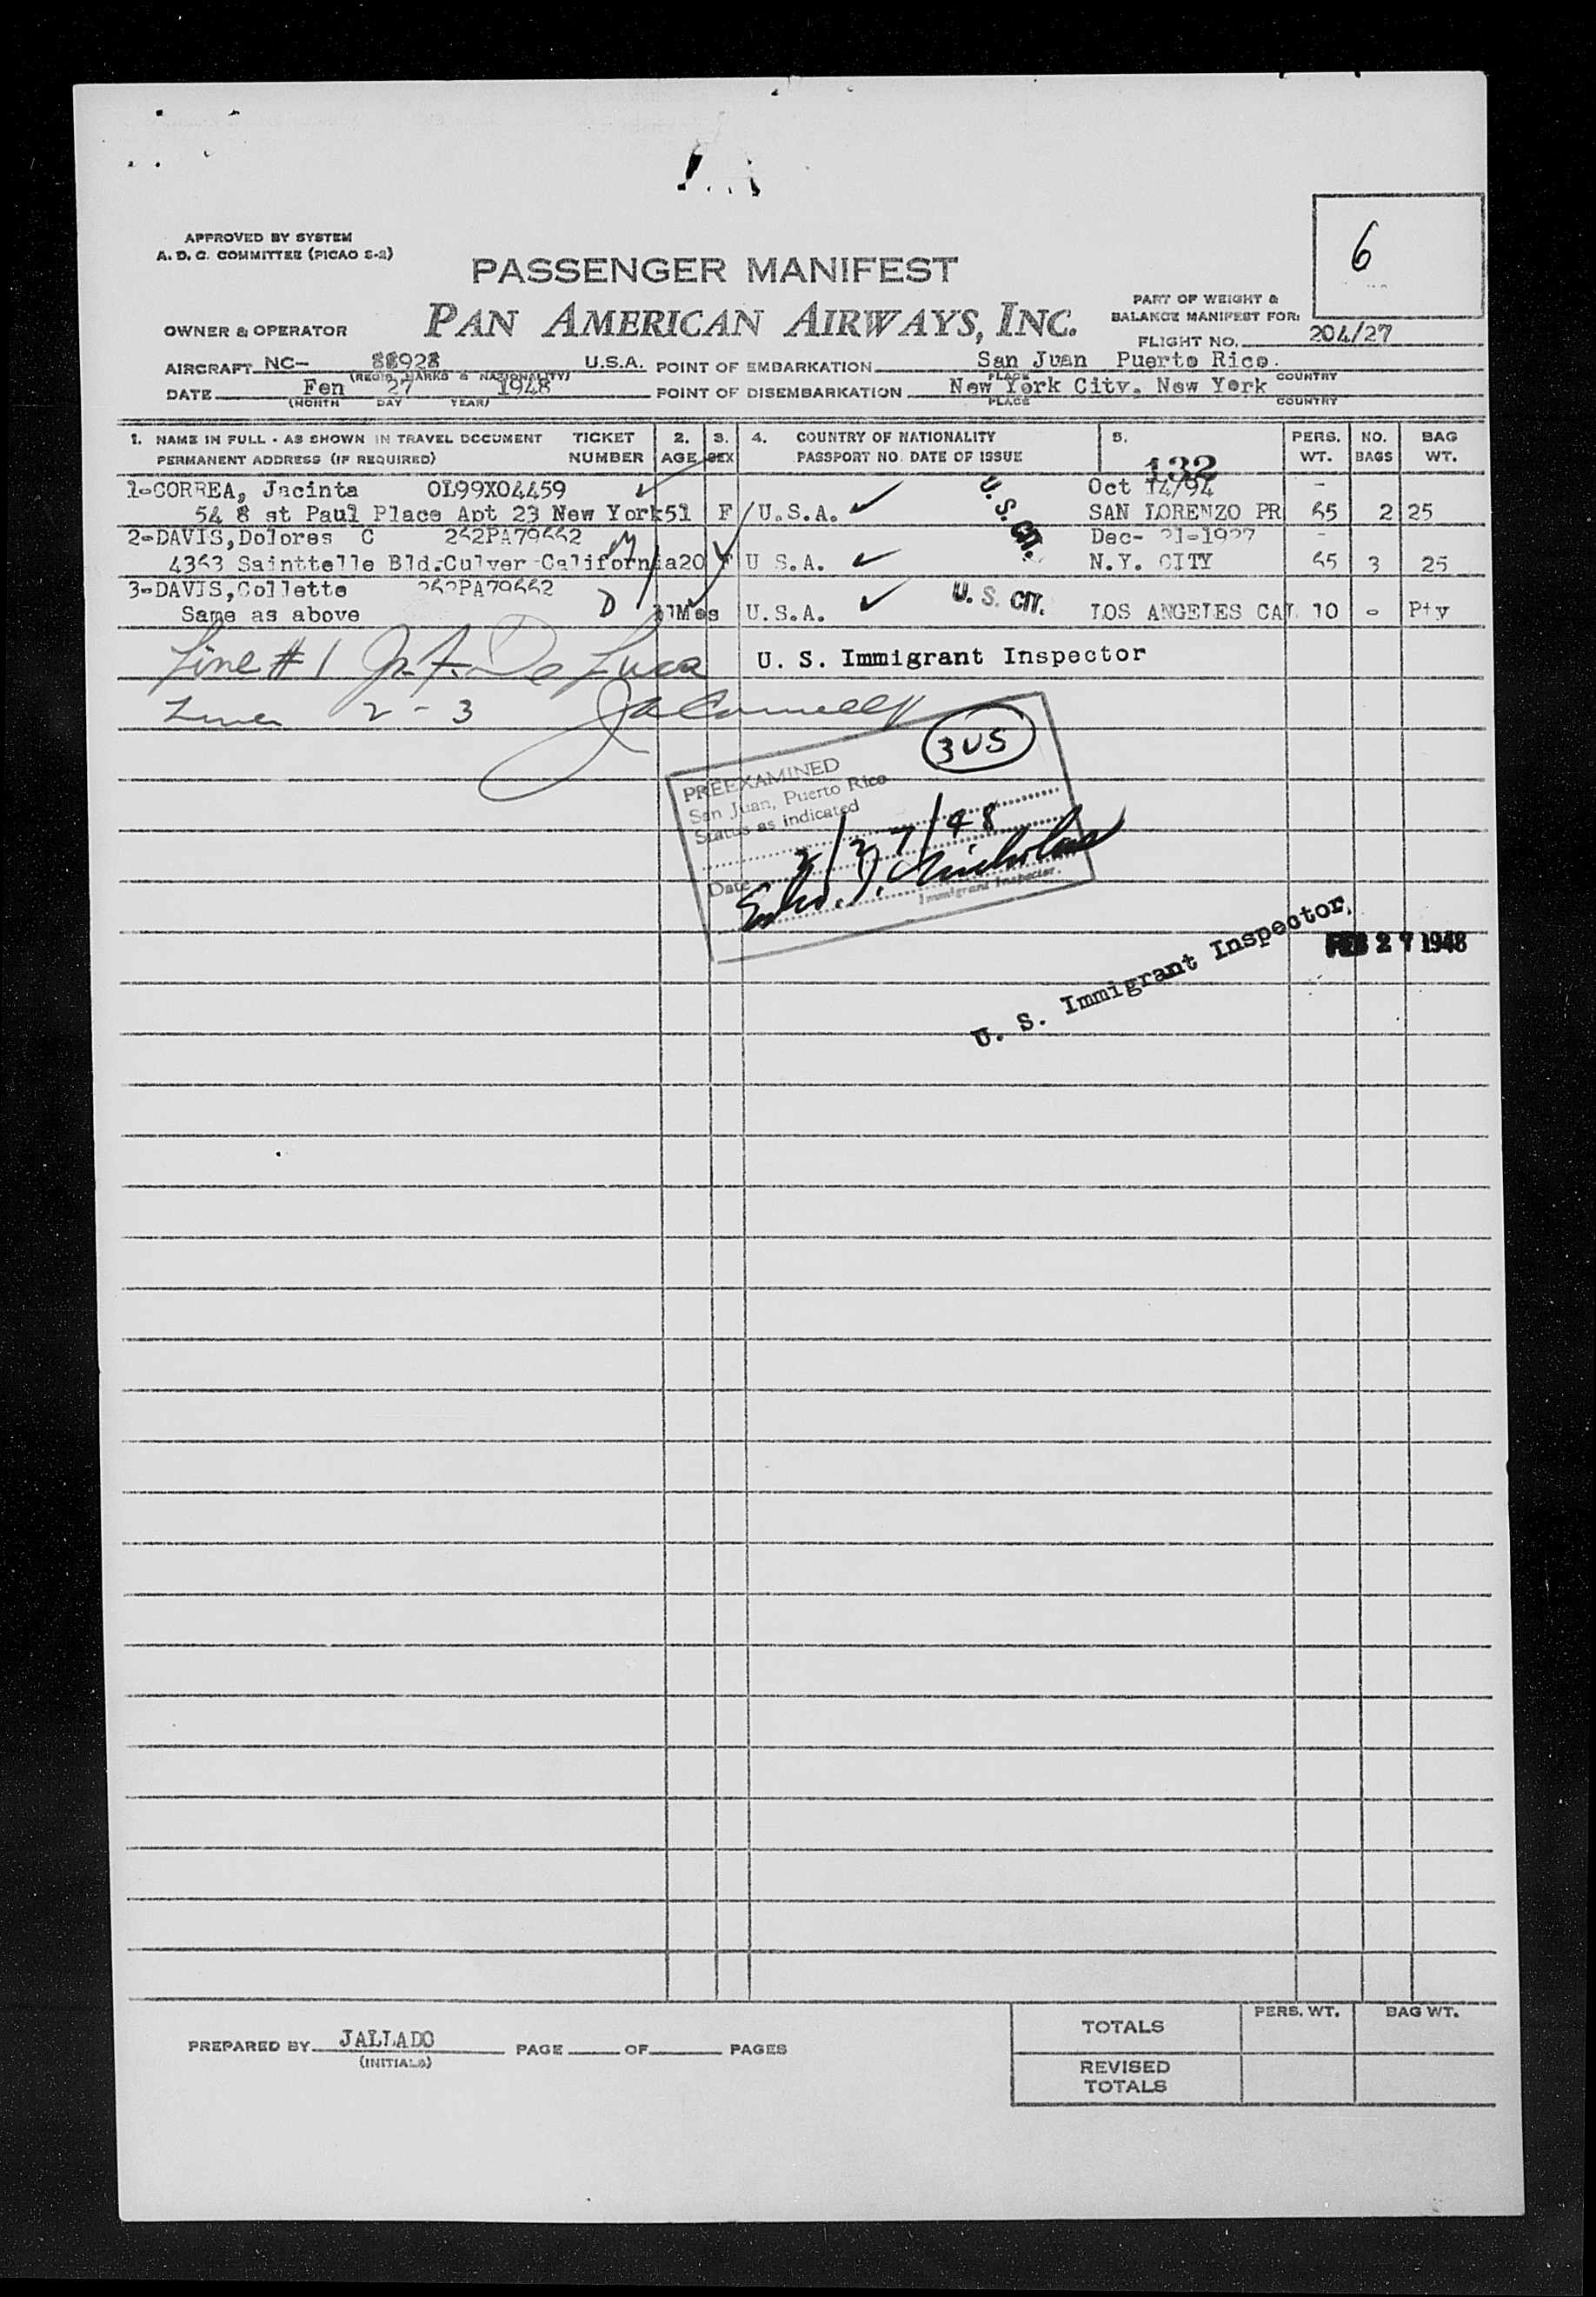 APPROVED BY SYSTEM
A. D. C. COMMITTEE (PICAO S-2)
6
PASSENGER MANIFEST
PART OF WEIGHT &
BALANCE MANIFEST FOR:
OWNER & OPERATOR PAN AMERICAN AIRWAYS, INC.
FLIGHT NO. 204/27
AIRCRAFT NC- 88928 U.S.A. POINT OF EMBARKATION San Juan Puerto Rico.
(REGIS. MARKS & NATIONALITY) PLACE COUNTRY
DATE Fen 27 1948 POINT OF DISEMBARKATION New York City, New York
(MONTH DAY YEAR) PLACE COUNTRY
1. NAME IN FULL - AS SHOWN IN TRAVEL DOCUMENT TICKET 2. 3. 4. COUNTRY OF NATIONALITY 5. PERS. NO. BAG
PERMANENT ADDRESS (IF REQUIRED) NUMBER AGE SEX PASSPORT NO. DATE OF ISSUE WT. BAGS WT.
132
1-CORREA, Jacinta OL99X04459 Oct 14/94 -
54 8 st Paul Place Apt 23 New York 51 F U.S.A. U. S. CIT. SAN LORENZO PR 65 2 25
2-DAVIS, Dolores C 262PA79662 M Dec- 21-1927 -
4363 Sainttelle Bld. Culver California 20 F U S.A. N.Y. CITY 65 3 25
3-DAVIS, Collette 262PA79662
Same as above D 11Mos U.S.A. U. S. CIT. LOS ANGELES CAL 10 - Pty
Line # 1 De Luca U. S. Immigrant Inspector
Lines 2 - 3
3 US
PREEXAMINED
San Juan, Puerto Rico
Status as indicated
Date 2/27/48
Nicholas
Immigrant Inspector.
U. S. Immigrant Inspector,
FEB 27 1948
PREPARED BY JALLADO PAGE OF PAGES
(INITIALS)
PERS. WT. BAG WT.
TOTALS
REVISED
TOTALS